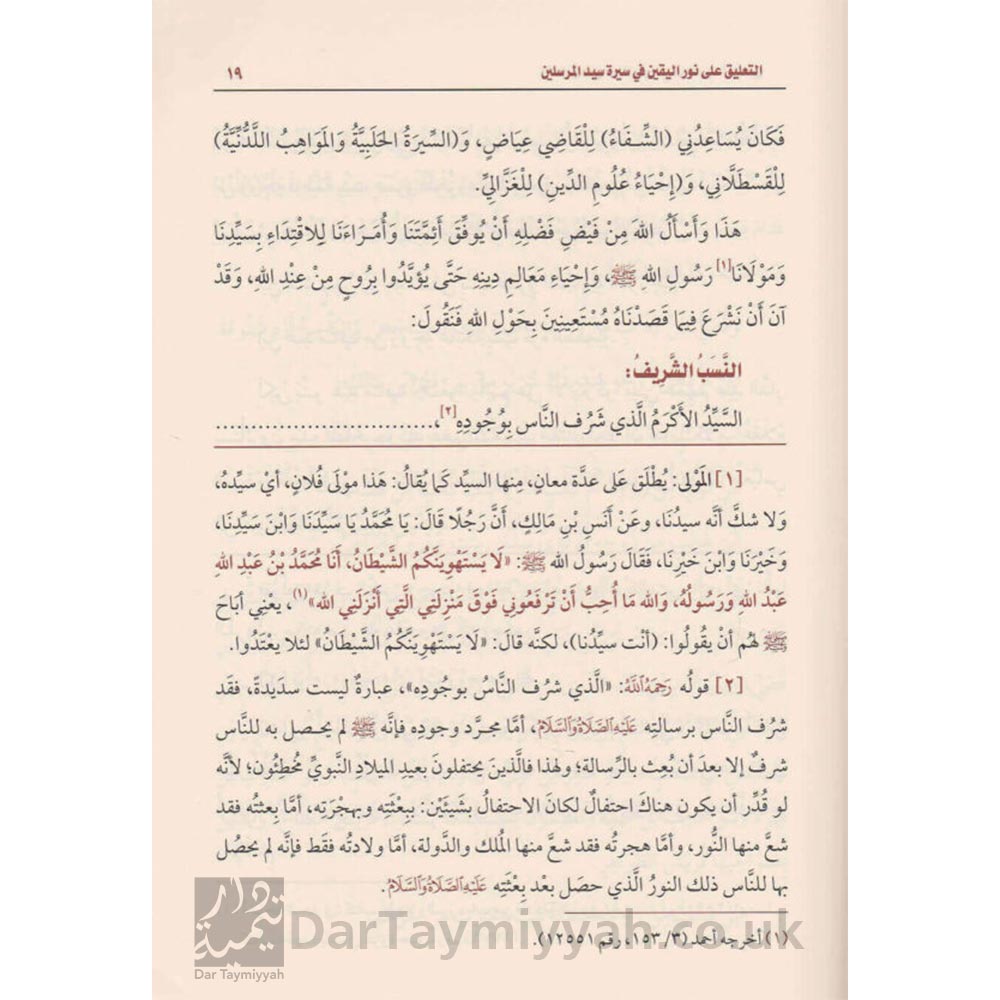 التعليق على نور اليقين في سيرة سيد المرسلين ١٩
فَكَانَ يُسَاعِدُنِي (الشِّفَاءُ) لِلْقَاضِي عِيَاضٍ، وَ(السِّيرَةُ الحَلَبِيَّةُ وَالمَوَاهِبُ اللَّدُنِّيَّةُ)
لِلْقَسْطَلَّانِي، وَ(إِحْيَاءُ عُلُومِ الدِّينِ) لِلْغَزَّالِيِّ.
هَذَا وَأَسْأَلُ اللهَ مِنْ فَيْضِ فَضْلِهِ أَنْ يُوفِّقَ أَئِمَّتَنَا وَأُمَرَاءَنَا لِلاقْتِدَاءِ بِسَيِّدِنَا
وَمَوْلَانَا[١] رَسُولِ اللهِ ﷺ، وَإِحْيَاءِ مَعَالِمِ دِينِهِ حَتَّى يُؤَيَّدُوا بِرُوحٍ مِنْ عِنْدِ اللهِ، وَقَدْ
آنَ أَنْ نَشْرَعَ فِيمَا قَصَدْنَاهُ مُسْتَعِينِينَ بِحَوْلِ اللهِ فَنَقُولُ:
النَّسَبُ الشَّرِيفُ:
السَّيِّدُ الأَكْرَمُ الَّذي شَرُف النَّاس بِوُجُودِهِ[٢]، ..............................
[١] المَوْلى: يُطْلَق عَلى عدَّة معانٍ، مِنها السيِّد كَما يُقالُ: هَذا مولَى فُلانٍ، أيْ سيِّدهُ،
وَلا شكَّ أنَّه سيدُنَا، وعَنْ أَنَسِ بْنِ مَالِكٍ، أَنَّ رَجُلًا قَالَ: يَا مُحَمَّدُ يَا سَيِّدَنَا وَابْنَ سَيِّدِنَا،
وَخَيْرَنَا وَابْنَ خَيْرِنَا، فَقَالَ رَسُولُ الله ﷺ: «لَا يَسْتَهْوِيَنَّكُمُ الشَّيْطَانُ، أَنَا مُحَمَّدُ بْنُ عَبْدِ اللهِ
عَبْدُ اللهِ وَرَسُولُهُ، وَالله مَا أُحِبُّ أَنْ تَرْفَعُونِي فَوْقَ مَنْزِلَتِي الَّتِي أَنْزَلَنِي الله»(١)، يعْنِي أبَاحَ
ﷺ لهُم أنْ يقُولُوا: (أنْت سيِّدُنا)، لكنَّه قالَ: «لَا يَسْتَهْوِيَنَّكُمُ الشَّيْطَانُ» لئلا يعْتَدُوا.
[٢] قولُه رَحِمَهُ اللَّهُ: «الَّذي شرُف النَّاسُ بوجُودِه»، عبارةٌ ليست سدَيدةً، فقَد
شرُف النَّاس برسالتِه عَلَيْهِ الصَّلَاةُ وَالسَّلَامُ، أمَّا مجرَّد وجودِه فإنَّه ﷺ لم يحصل به للنَّاس
شرفٌ إلا بعدَ أن بُعِث بالرِّسالة؛ ولهذا فالَّذينَ يحتفلونَ بعيدِ الميلادِ النَّبويِّ مُخطِئون؛ لأنَّه
لو قُدِّر أن يكون هناكَ احتفالٌ لكانَ الاحتفالُ بشَيئَين: ببِعْثَتِه وبهِجْرَتِه، أمَّا بعثتُه فقد
شعَّ منها النُّور، وأمَّا هجرتُه فقد شعَّ منها المُلك والدَّولة، أمَّا ولادتُه فقَط فإنَّه لم يحصُل
بها للنَّاس ذلك النورُ الَّذي حصَل بعْد بِعْثَتِه عَلَيْهِ الصَّلَاةُ وَالسَّلَامُ.
(١) أخرجه أحمد (٣/ ١٥٣، رقم ١٢٥٥١).
دار تيمية
Dar Taymiyyah
DarTaymiyyah.co.uk